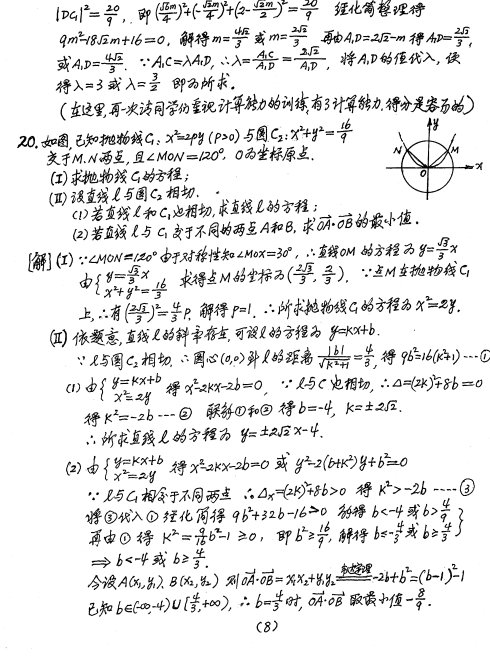 |DC₁|² = 20/9, 即(√6m/4)²+(-√2m/4)²+(2-√2m/2)² = 20/9 经化简整理得
9m²-18√2m+16=0, 解得m=4√2/3 或m=2√2/3 再由A₁D=2√2-m得A₁D=2√2/3,
或A₁D=4√2/3. ∵A₁C=λA₁D, ∴λ=A₁C/A₁D=2√2/A₁D, 将A₁D的值代入, 便
得λ=3或λ=3/2 即为所求.
(在这里,再一次请同学们重视计算能力的训练,有3计算能力,得分是容易的)
20. 如图,已知抛物线C₁: x²=2py(p>0)与圆C₂: x²+y²=16/9
交于M.N两点, 且∠MON=120°, O为坐标原点.
(I) 求抛物线C₁的方程;
(II) 设直线ℓ与圆C₂相切.
(1) 若直线ℓ和C₁也相切, 求直线ℓ的方程;
(2) 若直线ℓ与C₁交于不同的两点A和B, 求OA·OB的最小值.
y
N M
O x
[解] (I) ∵∠MON=120°由于对称性知∠MOX=30°, ∴直线OM的方程为y=√3/3 x
由{y=√3/3 x
x²+y²=16/9 求得点M的坐标为(2√3/3, 2/3). ∵点M在抛物线C₁
上,∴有(2√3/3)²=4/3 P, 解得P=1. ∴所求抛物线C₁的方程为x²=2y.
(II) 依题意,直线ℓ的斜率存在,可设ℓ的方程为 y=kx+b.
∵ℓ与圆C₂相切. ∴圆心(0,0)到ℓ的距离 |b|/√(k²+1)=4/3, 得9b²=16(k²+1)---①
(1) 由{y=kx+b
x²=2y 得 x²-2kx-2b=0, ∵ℓ与C₁也相切,∴△=(2k)²+8b=0
得 k²=-2b ---② 联解①和②得b=-4, k=±2√2.
∴所求直线ℓ的方程为 y=±2√2x-4.
(2) 由{y=kx+b
x²=2y 得x²-2kx-2b=0 或 y²-2(b+k²)y+b²=0
∵ℓ与C₁相交于不同两点 ∴△x=(2k)²+8b>0 得k²>-2b -----③
将③代入①经化简得 9b²+32b-16>0 解得b<-4或b>4/9
再由①得 k²=9/16b²-1≥0, 即b²≥16/9, 解得b≤-4/3或b≥4/3}
⟹ b<-4 或 b≥4/3.
今设A(x₁,y₁), B(x₂,y₂) 则OA·OB=x₁x₂+y₁y₂ 韦达定理 -2b+b²=(b-1)²-1
已知b∈(-∞,-4)∪[4/3,+∞), ∴b=4/3时, OA·OB 取最小值-8/9.
(8)